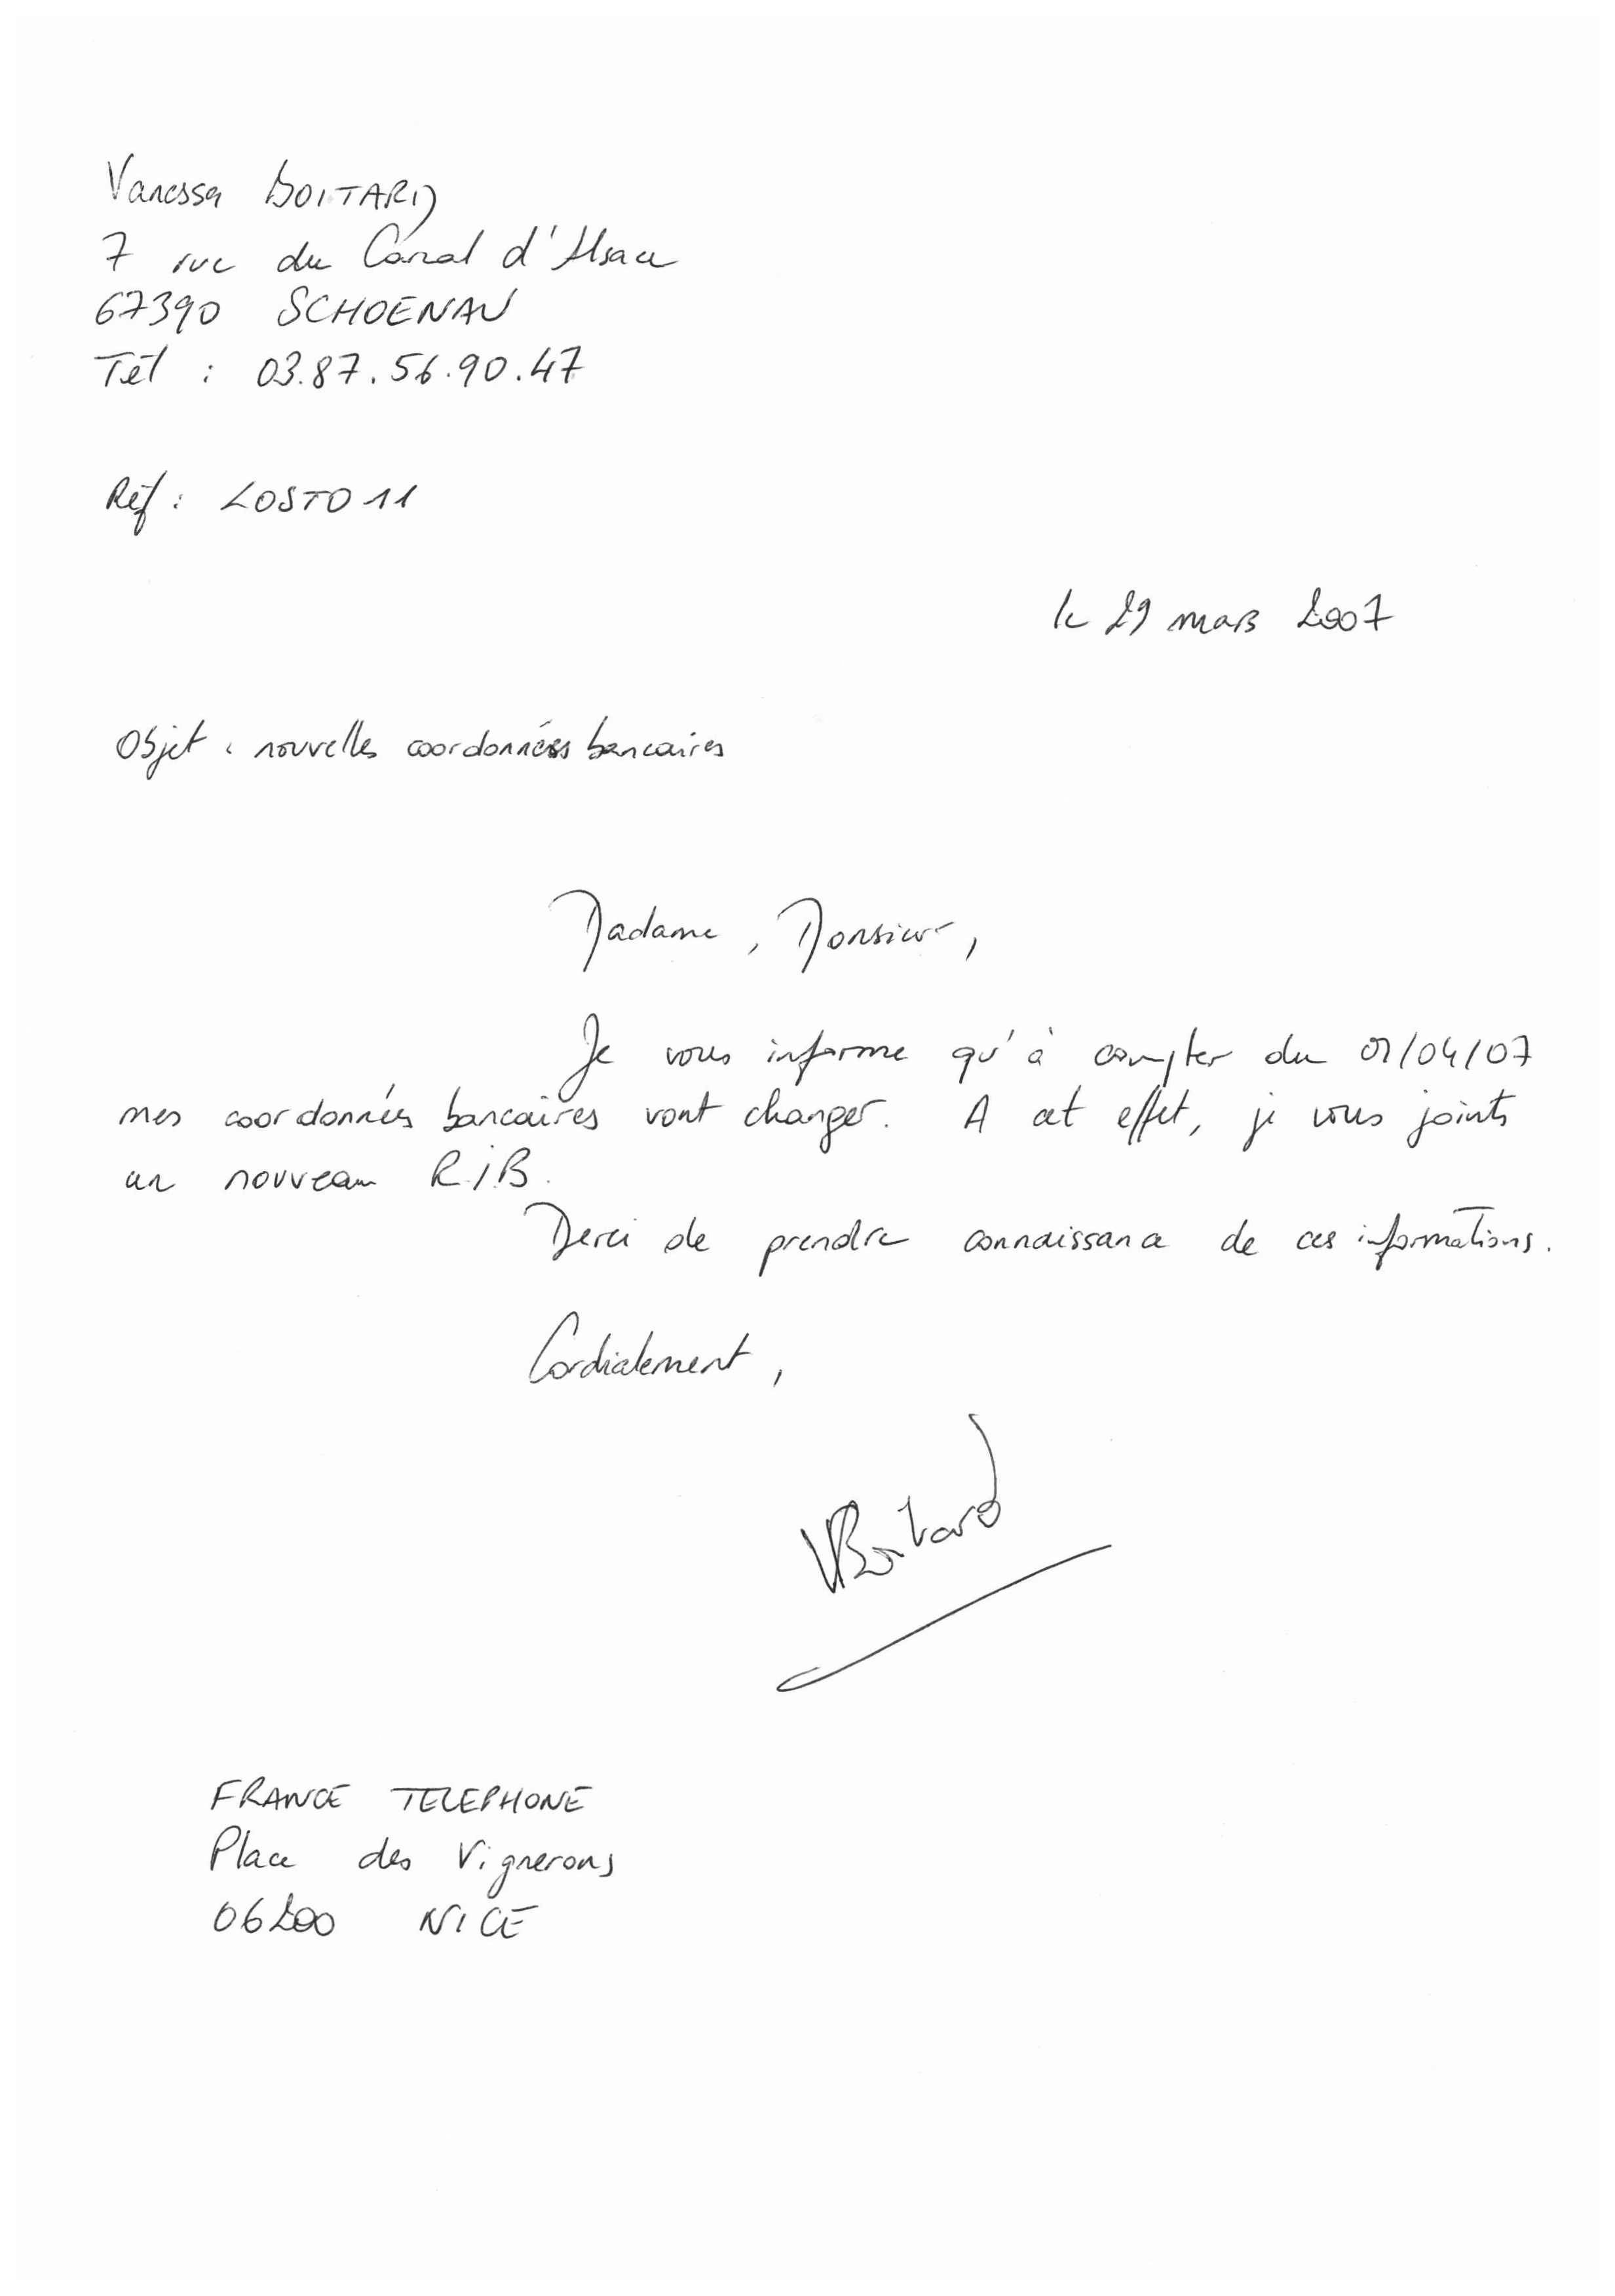 Vanessa BOITARD
7 rue du Canal d'Alsace
67390 SCHOENAU
Tél : 03.87.56.90.47
Réf : LOSTO11
le 29 mars 2007
Objet : nouvelles coordonnées bancaires
Madame, Monsieur,
Je vous informe qu'à compter du 01/04/07
mes coordonnées bancaires vont changer. A cet effet, je vous joints
un nouveau R.I.B.
Merci de prendre connaissance de ces informations.
Cordialement,
VBoitard
FRANCE TELEPHONE
Place des Vignerons
06200 NICE